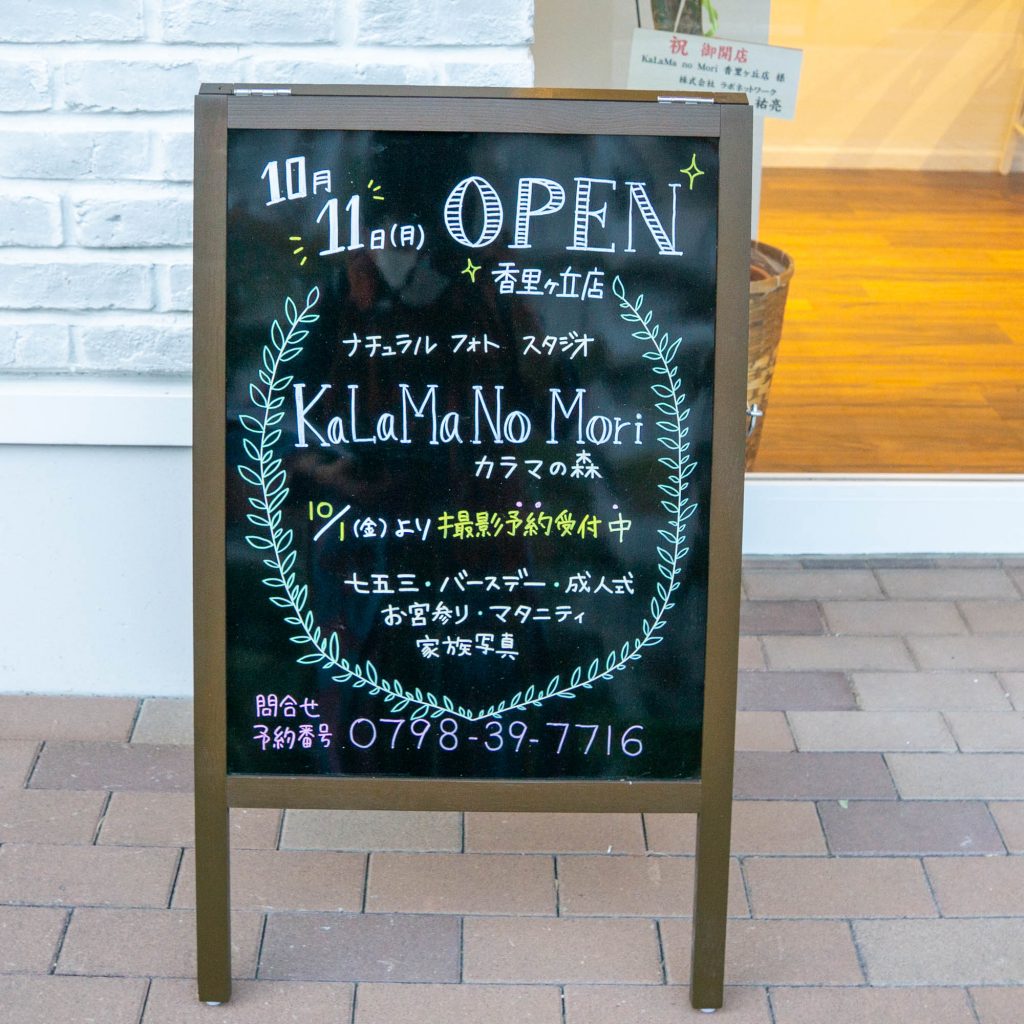 祝 御開店
KaLaMa no Mori 香里ヶ丘店 様
株式会社 ラボネットワーク
祐亮
10月
11日(月) OPEN
香里ヶ丘店
ナチュラル フォト スタジオ
KaLaMa No Mori
カラマの森
10/1(金)より 撮影予約受付中
七五三・バースデー・成人式
お宮参り・マタニティ
家族写真
問合せ
予約番号 0798-39-7716